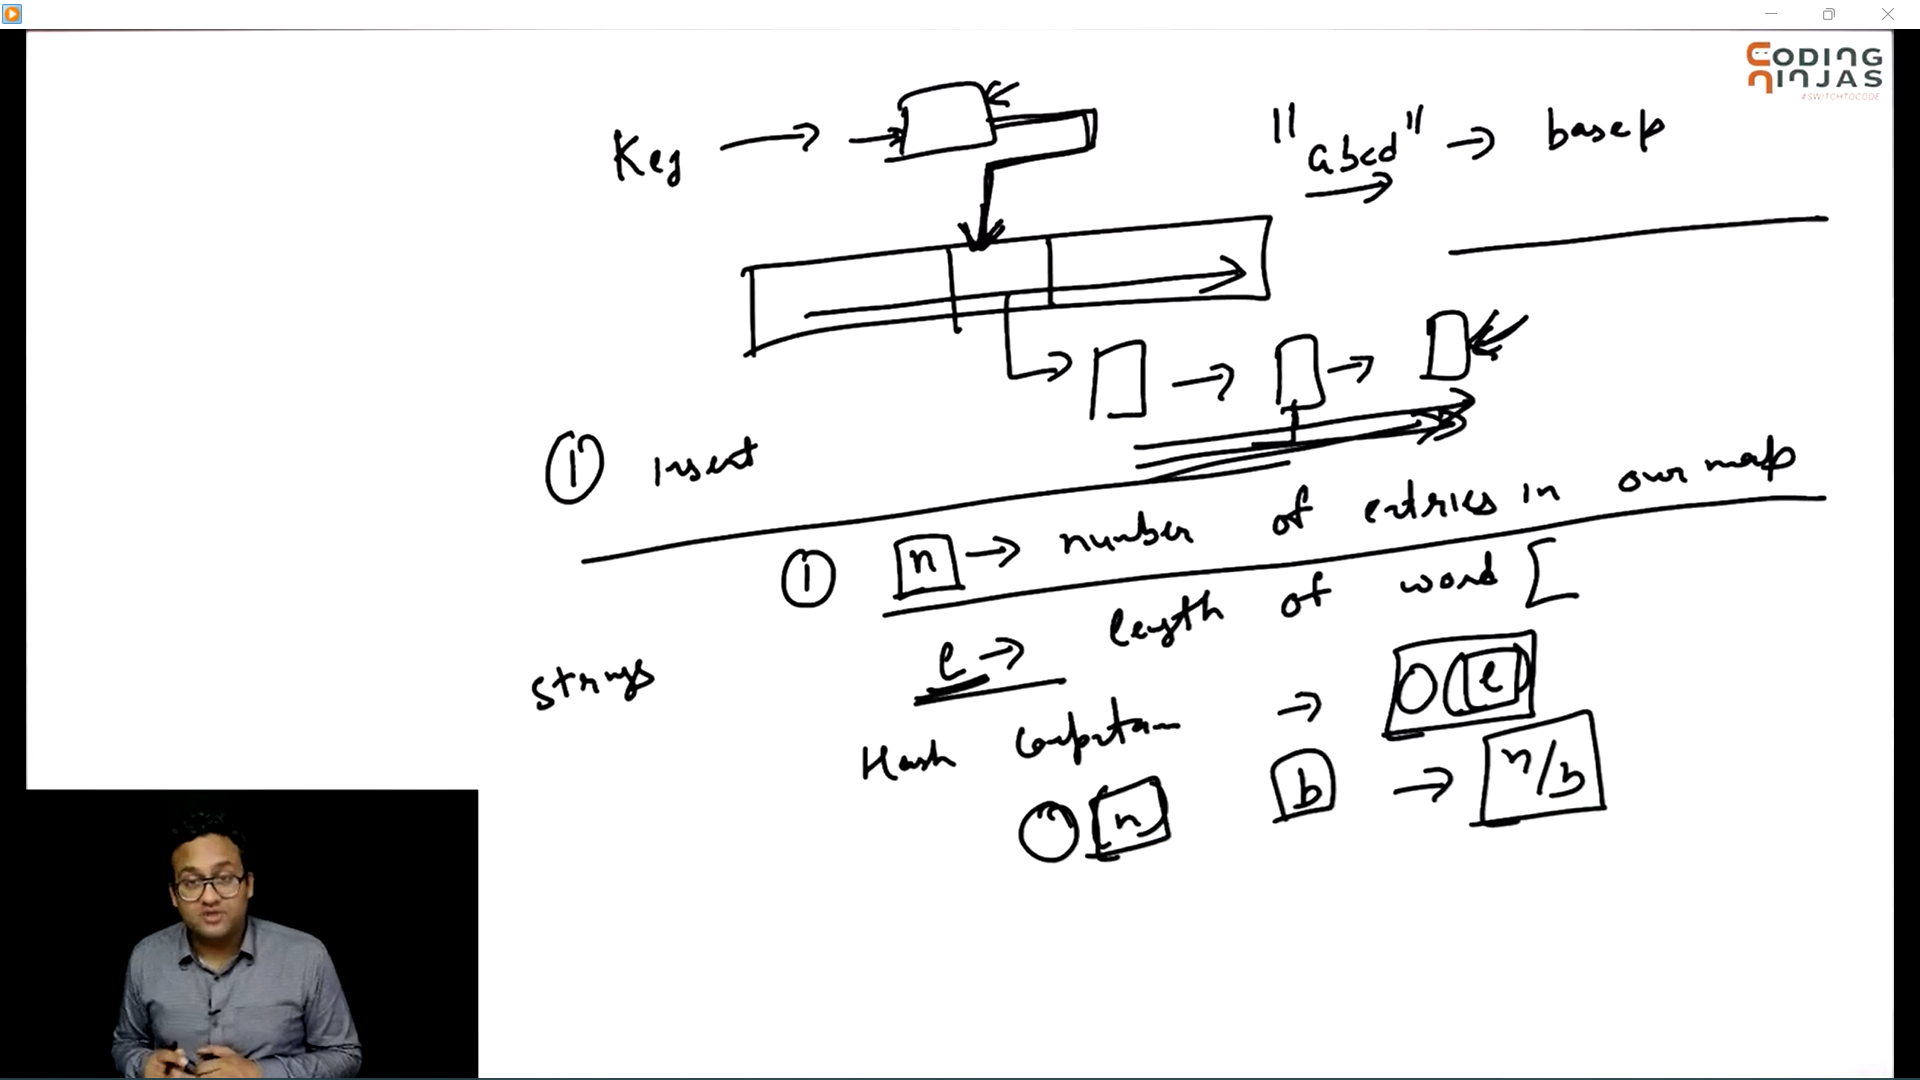 CODING NINJAS
#SWITCHTOCODE
Key → "abcd" → base p
① Insert
① n → number of entries in our map
l → length of word [
Strings
Hash → O(l)
O(n) b → n/b